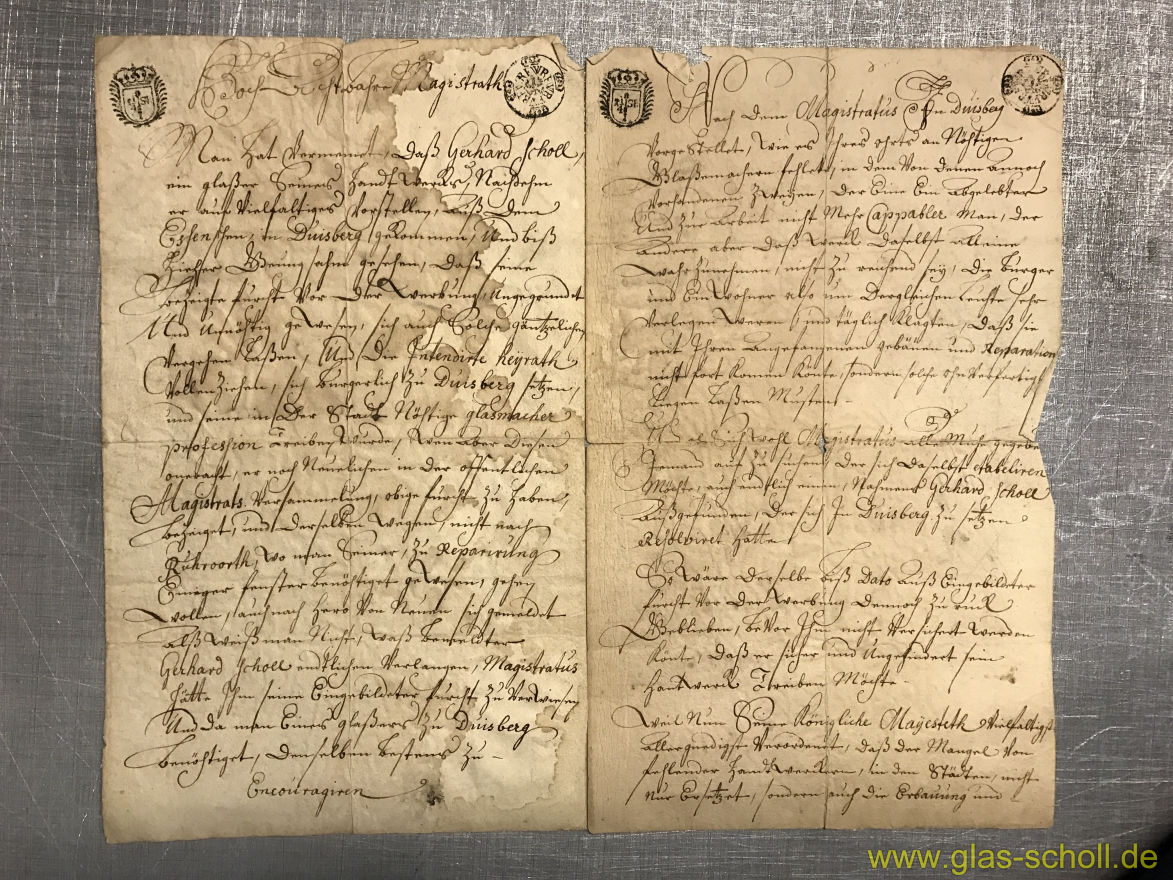 Hoch Achtbahre Magistrath
Man hat Vermeint, daß Gerhard Scholl,
ein glaßer Seines Handtwercks, Nachdehm
er auf Vielfaltiges Vorstellen, auß dem
Essenschen, in Duisberg gekommen, Und biß
hiehero gesehen, daß seine
bezeigte furcht Vor der Werbung, Ungegründet
Und Unnöthig gewesen, sich auch Solche gäntzlichen
Vergehen Laßen, Und die Intendirte Heyrath
Vollenziehen, sich bürgerlich zu Duisberg setzen,
und seine in der Stadt Nöhtige glasmacher
profession Treiben würde, Wen aber diesen
ohneracht, er noch Neuelichen in der öffentlichen
Magistrats Versammelung, obige furcht zu haben,
bezeiget, und derselben wegen, nicht nach
Ruhroorth, wo man Seiner, zu Reparirung
Einiger fenster benöhtiget gewesen, gehen
wollen, auch nach hero Von Neuen sich gemeldet
Alß weiß man Nicht, waß
Gerhard Scholl endtlichen Verlangen, Magistratus
hätte Ihm seine Eingebildete furcht zu Verwiesen
Und da man Eines glaßers zu Duisberg
benöhtiget, denselben bestens zu -
Encouragiren
Nach dem Magistratus In Duisberg
Vorgestellet, wie es Ihres ohrts an Nöhtigen
Glaßemachern fehlete, in dem Von denen annoch
Vorhandenen Zweyen, der Eine Ein abgelebter
Und zur Arbeit nicht Mehr Cappabler Man, der
Andere aber daß werck daselbst alleine
wahrzunehmen, nicht zu reichend sey, die bürger
und Einwohner also um dergleichen Leuthe sehr
Verlegen weren, und täglich Klagten, daß sie
mit Ihren angefangenen gebäuen und Reparation
nicht fort Komen Könte, sondern solche ohn Verfertigt
Liegen Laßen Müsten -
Und ob Sich wohl Magistratus alle Mühe gegeben
Jemand auf zu suchen, der sich daselbst etabeliren
Möchte, auch endtlich einen, Nahmens Gerhard Scholl
Außgefunden, der sich In Duisberg zu setzen
Resolviret Hatte
So wäre derselbe biß Dato auß Eingebildeter
furcht Vor der werbung dennoch zu rück
Geblieben, beVor Ihm nicht Versichert werden
Könte, daß er sicher und Ungehindert sein
Handtwerck Treiben Möchte -
Weil Nun Seine Königliche Mayesteth Vielfältigst
Allergnedigst Verordenet, daß der Mangel Von
fehlender Handtwerckern, in den Städten, nicht
Nur Ersetzet, sondern auch die Erbauung und -
www.glas-scholl.de